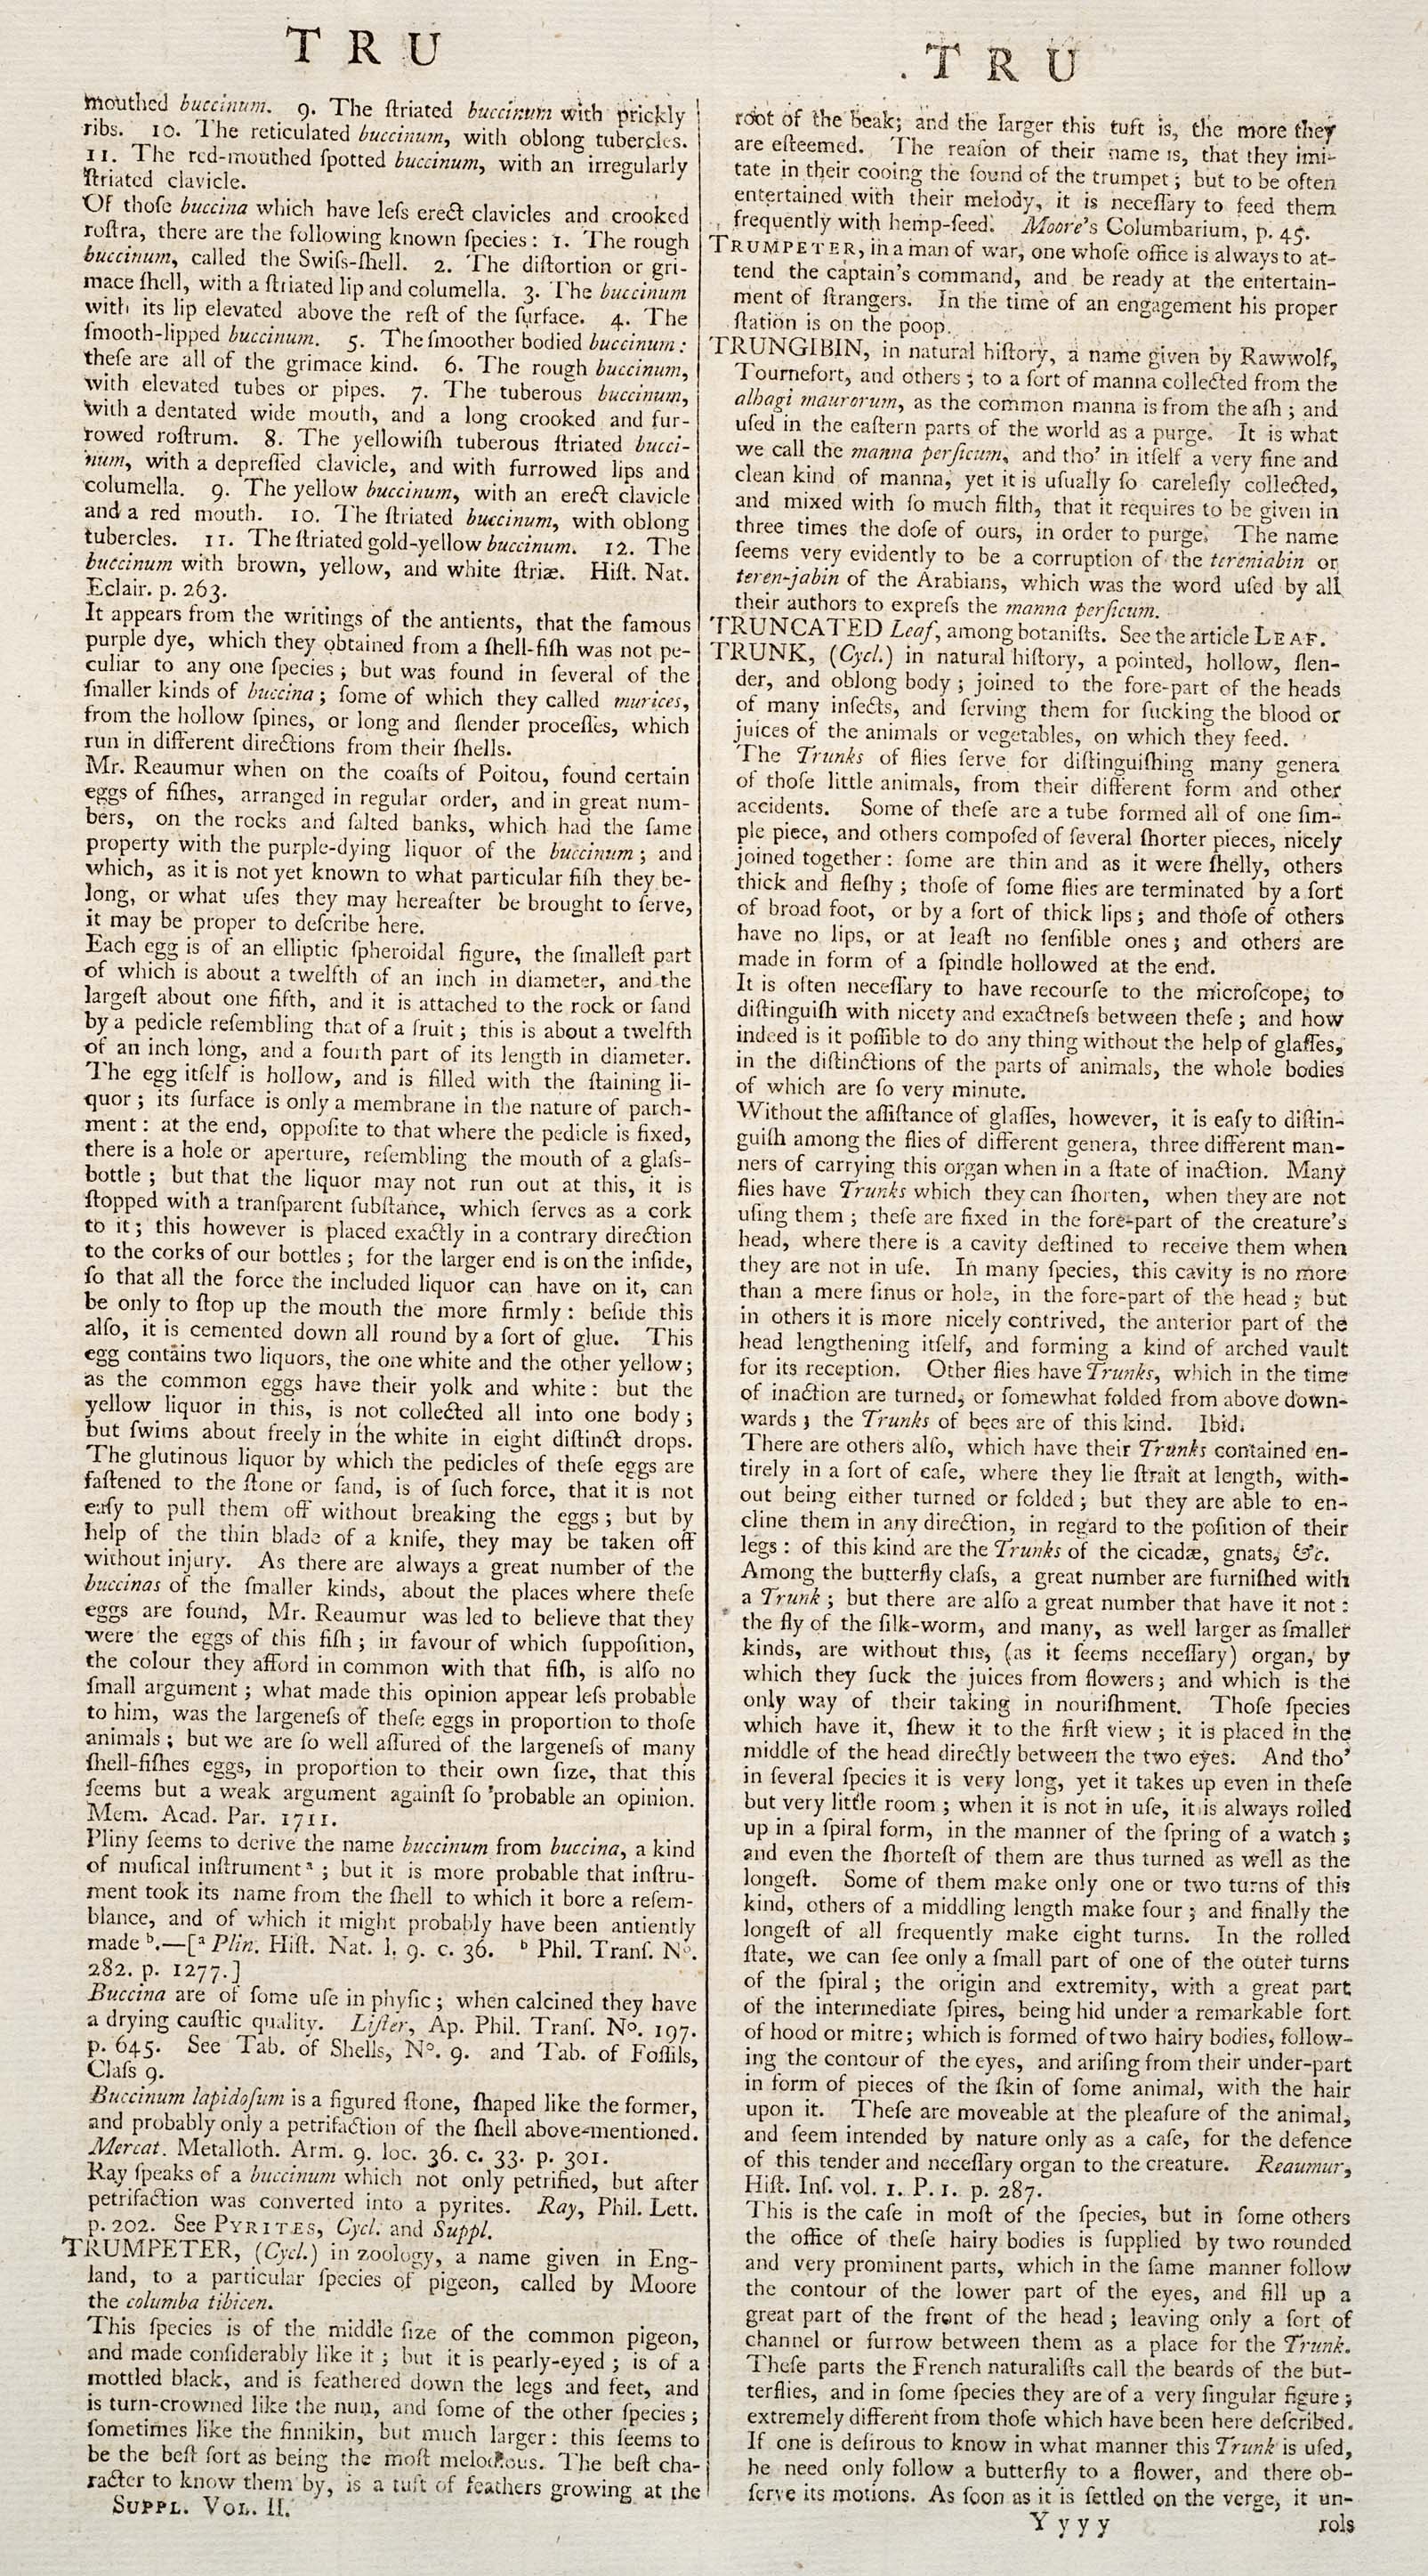 T R U
mouthed buccinum. 9. The ſtriated buccinum with prickly
ribs. 10. The reticulated buccinum, with oblong tubercles.
11. The red-mouthed ſpotted buccinum, with an irregularly
ſtriated clavicle.
Of thoſe buccina which have leſs erect clavicles and crooked
roſtra, there are the following known ſpecies: 1. The rough
buccinum, called the Swiſs-ſhell. 2. The diſtortion or gri-
mace ſhell, with a ſtriated lip and columella. 3. The buccinum
with its lip elevated above the reſt of the ſurface. 4. The
ſmooth-lipped buccinum. 5. The ſmoother bodied buccinum:
theſe are all of the grimace kind. 6. The rough buccinum,
with elevated tubes or pipes. 7. The tuberous buccinum,
with a dentated wide mouth, and a long crooked and fur-
rowed roſtrum. 8. The yellowiſh tuberous ſtriated bucci-
num, with a depreſſed clavicle, and with furrowed lips and
columella. 9. The yellow buccinum, with an erect clavicle
and a red mouth. 10. The ſtriated buccinum, with oblong
tubercles. 11. The ſtriated gold-yellow buccinum. 12. The
buccinum with brown, yellow, and white ſtriæ. Hiſt. Nat.
Eclair. p. 263.
It appears from the writings of the antients, that the famous
purple dye, which they obtained from a ſhell-fiſh was not pe-
culiar to any one ſpecies; but was found in ſeveral of the
ſmaller kinds of buccina; ſome of which they called murices,
from the hollow ſpines, or long and ſlender proceſſes, which
run in different directions from their ſhells.
Mr. Reaumur when on the coaſts of Poitou, found certain
eggs of fiſhes, arranged in regular order, and in great num-
bers, on the rocks and ſalted banks, which had the ſame
property with the purple-dying liquor of the buccinum; and
which, as it is not yet known to what particular fiſh they be-
long, or what uſes they may hereafter be brought to ſerve,
it may be proper to deſcribe here.
Each egg is of an elliptic ſpheroidal figure, the ſmalleſt part
of which is about a twelfth of an inch in diameter, and the
largeſt about one fifth, and it is attached to the rock or ſand
by a pedicle reſembling that of a fruit; this is about a twelfth
of an inch long, and a fourth part of its length in diameter.
The egg itſelf is hollow, and is filled with the ſtaining li-
quor; its ſurface is only a membrane in the nature of parch-
ment: at the end, oppoſite to that where the pedicle is fixed,
there is a hole or aperture, reſembling the mouth of a glaſs-
bottle; but that the liquor may not run out at this, it is
ſtopped with a tranſparent ſubſtance, which ſerves as a cork
to it; this however is placed exactly in a contrary direction
to the corks of our bottles; for the larger end is on the inſide,
ſo that all the force the included liquor can have on it, can
be only to ſtop up the mouth the more firmly: beſide this
alſo, it is cemented down all round by a ſort of glue. This
egg contains two liquors, the one white and the other yellow;
as the common eggs have their yolk and white: but the
yellow liquor in this, is not collected all into one body;
but ſwims about freely in the white in eight diſtinct drops.
The glutinous liquor by which the pedicles of theſe eggs are
faſtened to the ſtone or ſand, is of ſuch force, that it is not
eaſy to pull them off without breaking the eggs; but by
help of the thin blade of a knife, they may be taken off
without injury. As there are always a great number of the
buccinas of the ſmaller kinds, about the places where theſe
eggs are found, Mr. Reaumur was led to believe that they
were the eggs of this fiſh; in favour of which ſuppoſition,
the colour they afford in common with that fiſh, is alſo no
ſmall argument; what made this opinion appear leſs probable
to him, was the largeneſs of theſe eggs in proportion to thoſe
animals; but we are ſo well aſſured of the largeneſs of many
ſhell-fiſhes eggs, in proportion to their own ſize, that this
ſeems but a weak argument againſt ſo probable an opinion.
Mem. Acad. Par. 1711.
Pliny ſeems to derive the name buccinum from buccina, a kind
of muſical inſtrument ᵃ; but it is more probable that inſtru-
ment took its name from the ſhell to which it bore a reſem-
blance, and of which it might probably have been antiently
made ᵇ.—[ᵃ Plin. Hiſt. Nat. l. 9. c. 36. ᵇ Phil. Tranſ. Nº.
282. p. 1277.]
Buccina are of ſome uſe in phyſic; when calcined they have
a drying cauſtic quality. Liſter, Ap. Phil. Tranſ. Nº. 197.
p. 645. See Tab. of Shells, Nº. 9. and Tab. of Foſſils,
Claſs 9.
Buccinum lapidoſum is a figured ſtone, ſhaped like the former,
and probably only a petrifaction of the ſhell above-mentioned.
Mercat. Metalloth. Arm. 9. loc. 36. c. 33. p. 301.
Ray ſpeaks of a buccinum which not only petrified, but after
petrifaction was converted into a pyrites. Ray, Phil. Lett.
p. 202. See PYRITES, Cycl. and Suppl.
TRUMPETER, (Cycl.) in zoology, a name given in Eng-
land, to a particular ſpecies of pigeon, called by Moore
the columba tibicen.
This ſpecies is of the middle ſize of the common pigeon,
and made conſiderably like it; but it is pearly-eyed; is of a
mottled black, and is feathered down the legs and feet, and
is turn-crowned like the nun, and ſome of the other ſpecies;
ſometimes like the finnikin, but much larger: this ſeems to
be the beſt ſort as being the moſt melodious. The beſt cha-
racter to know them by, is a tuft of feathers growing at the
SUPPL. VOL. II.
T R U
root of the beak; and the larger this tuft is, the more they
are eſteemed. The reaſon of their name is, that they imi-
tate in their cooing the ſound of the trumpet; but to be often
entertained with their melody, it is neceſſary to feed them
frequently with hemp-ſeed. Moore's Columbarium, p. 45.
TRUMPETER, in a man of war, one whoſe office is always to at-
tend the captain's command, and be ready at the entertain-
ment of ſtrangers. In the time of an engagement his proper
ſtation is on the poop.
TRUNGIBIN, in natural hiſtory, a name given by Rawwolf,
Tournefort, and others; to a ſort of manna collected from the
alhagi maurorum, as the common manna is from the aſh; and
uſed in the eaſtern parts of the world as a purge. It is what
we call the manna perſicum, and tho' in itſelf a very fine and
clean kind of manna, yet it is uſually ſo careleſly collected,
and mixed with ſo much filth, that it requires to be given in
three times the doſe of ours, in order to purge. The name
ſeems very evidently to be a corruption of the tereniabin or
teren-jabin of the Arabians, which was the word uſed by all
their authors to expreſs the manna perſicum.
TRUNCATED Leaf, among botaniſts. See the article LEAF.
TRUNK, (Cycl.) in natural hiſtory, a pointed, hollow, ſlen-
der, and oblong body; joined to the fore-part of the heads
of many inſects, and ſerving them for ſucking the blood or
juices of the animals or vegetables, on which they feed.
The Trunks of flies ſerve for diſtinguiſhing many genera
of thoſe little animals, from their different form and other
accidents. Some of theſe are a tube formed all of one ſim-
ple piece, and others compoſed of ſeveral ſhorter pieces, nicely
joined together: ſome are thin and as it were ſhelly, others
thick and fleſhy; thoſe of ſome flies are terminated by a ſort
of broad foot, or by a ſort of thick lips; and thoſe of others
have no lips, or at leaſt no ſenſible ones; and others are
made in form of a ſpindle hollowed at the end.
It is often neceſſary to have recourſe to the microſcope, to
diſtinguiſh with nicety and exactneſs between theſe; and how
indeed is it poſſible to do any thing without the help of glaſſes,
in the diſtinctions of the parts of animals, the whole bodies
of which are ſo very minute.
Without the aſſiſtance of glaſſes, however, it is eaſy to diſtin-
guiſh among the flies of different genera, three different man-
ners of carrying this organ when in a ſtate of inaction. Many
flies have Trunks which they can ſhorten, when they are not
uſing them; theſe are fixed in the fore-part of the creature's
head, where there is a cavity deſtined to receive them when
they are not in uſe. In many ſpecies, this cavity is no more
than a mere ſinus or hole, in the fore-part of the head; but
in others it is more nicely contrived, the anterior part of the
head lengthening itſelf, and forming a kind of arched vault
for its reception. Other flies have Trunks, which in the time
of inaction are turned, or ſomewhat folded from above down-
wards; the Trunks of bees are of this kind. Ibid.
There are others alſo, which have their Trunks contained en-
tirely in a ſort of caſe, where they lie ſtrait at length, with-
out being either turned or folded; but they are able to en-
cline them in any direction, in regard to the poſition of their
legs: of this kind are the Trunks of the cicadæ, gnats, &c.
Among the butterfly claſs, a great number are furniſhed with
a Trunk; but there are alſo a great number that have it not:
the fly of the ſilk-worm, and many, as well larger as ſmaller
kinds, are without this, (as it ſeems neceſſary) organ, by
which they ſuck the juices from flowers; and which is the
only way of their taking in nouriſhment. Thoſe ſpecies
which have it, ſhew it to the firſt view; it is placed in the
middle of the head directly between the two eyes. And tho'
in ſeveral ſpecies it is very long, yet it takes up even in theſe
but very little room; when it is not in uſe, it is always rolled
up in a ſpiral form, in the manner of the ſpring of a watch;
and even the ſhorteſt of them are thus turned as well as the
longeſt. Some of them make only one or two turns of this
kind, others of a middling length make four; and finally the
longeſt of all frequently make eight turns. In the rolled
ſtate, we can ſee only a ſmall part of one of the outer turns
of the ſpiral; the origin and extremity, with a great part
of the intermediate ſpires, being hid under a remarkable ſort
of hood or mitre; which is formed of two hairy bodies, follow-
ing the contour of the eyes, and ariſing from their under-part
in form of pieces of the ſkin of ſome animal, with the hair
upon it. Theſe are moveable at the pleaſure of the animal,
and ſeem intended by nature only as a caſe, for the defence
of this tender and neceſſary organ to the creature. Reaumur,
Hiſt. Inſ. vol. 1. P. 1. p. 287.
This is the caſe in moſt of the ſpecies, but in ſome others
the office of theſe hairy bodies is ſupplied by two rounded
and very prominent parts, which in the ſame manner follow
the contour of the lower part of the eyes, and fill up a
great part of the front of the head; leaving only a ſort of
channel or furrow between them as a place for the Trunk.
Theſe parts the French naturaliſts call the beards of the but-
terflies, and in ſome ſpecies they are of a very ſingular figure;
extremely different from thoſe which have been here deſcribed.
If one is deſirous to know in what manner this Trunk is uſed,
he need only follow a butterfly to a flower, and there ob-
ſerve its motions. As ſoon as it is ſettled on the verge, it un-
Y y y y
rols